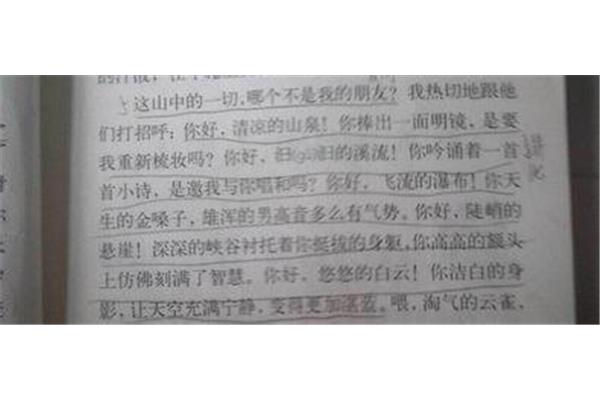 这山中的一切，哪个不是我的朋友？我热切地跟他
们打招呼：你好，清凉的山泉！你捧出一面明镜，是要
我重新梳妆吗？你好，的溪流！你吟诵着一首
首小诗，是邀我与你唱和吗？你好，飞流的瀑布！你天
生的金嗓子，雄浑的男高音多么有气势。你好，陡峭的
悬崖！深深的峡谷衬托着你挺拔的身躯，你高高的额头
上仿佛刻满了智慧。你好，悠悠的白云！你洁白的身
影，让天空充满宁静，变得更加湛蓝。喂，淘气的云雀，